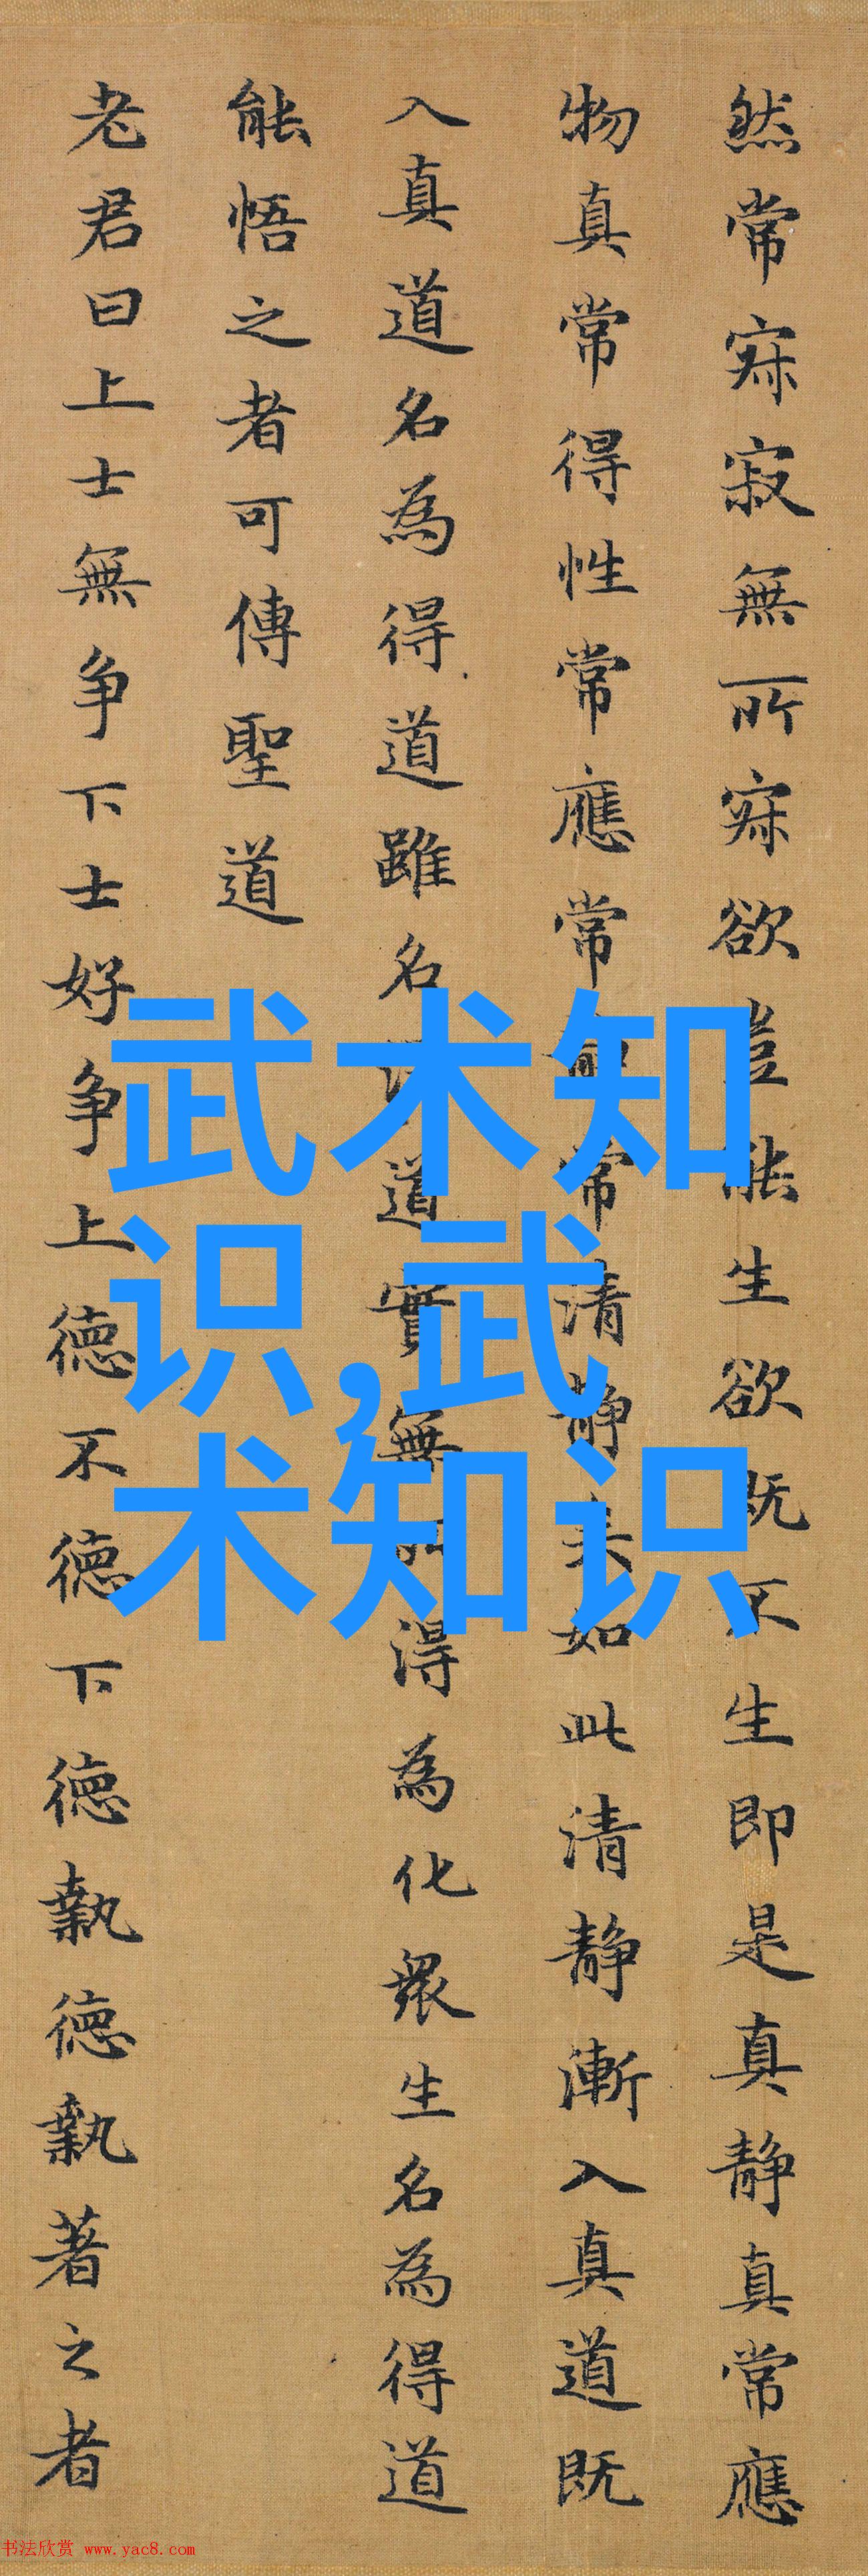 然常寂寂無所寂欲豈能生欲既不生即是真静真常應
物真常得性常應常静常清静矣如此清静漸入真道既
入真道名為得道雖名得道實無所得為化衆生名為得道
能悟之者可傳聖道
老君曰上士無争下士好争上德不德下德執德執著之者
武术知
识,武
术知识
书法欣赏 www.yac8.com